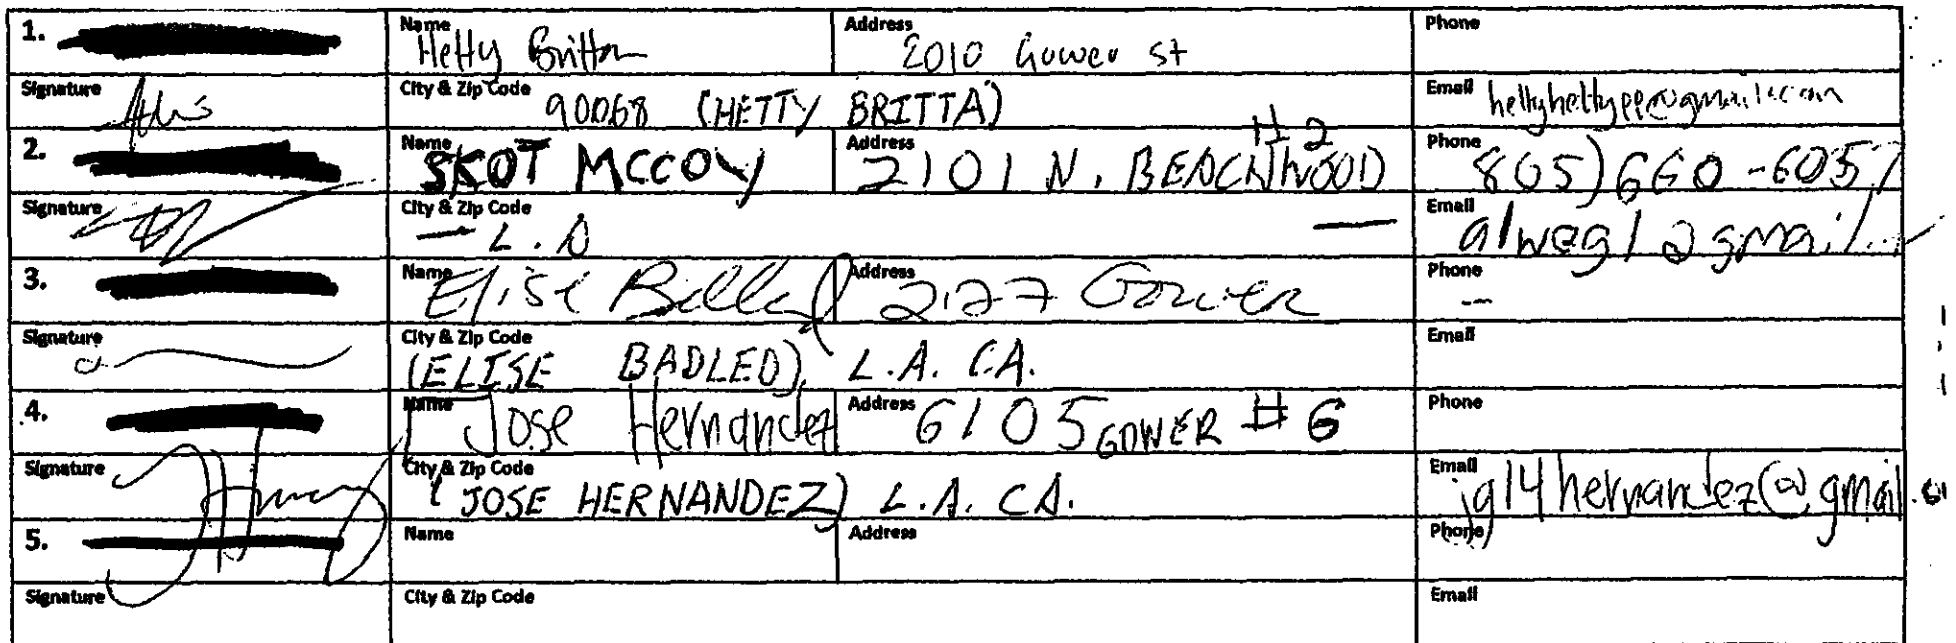 1. Name Hetty Britton Address 2010 Gower st Phone
Signature City & Zip Code 90068 (HETTY BRITTA) Email
2. Name SKOT MCCOY Address 2101 N. BEACHWOOD #2 Phone 805) 660-6057
Signature City & Zip Code — L.A — Email
3. Name Elise Address 2177 Gower Phone —
Signature City & Zip Code (ELISE BADLED) L.A. CA. Email
4. Name Jose Hernandez Address 6105 GOWER #6 Phone
Signature City & Zip Code (JOSE HERNANDEZ) L.A. CA. Email jg14hernandez@gmail
5. Name Address Phone
Signature City & Zip Code Email